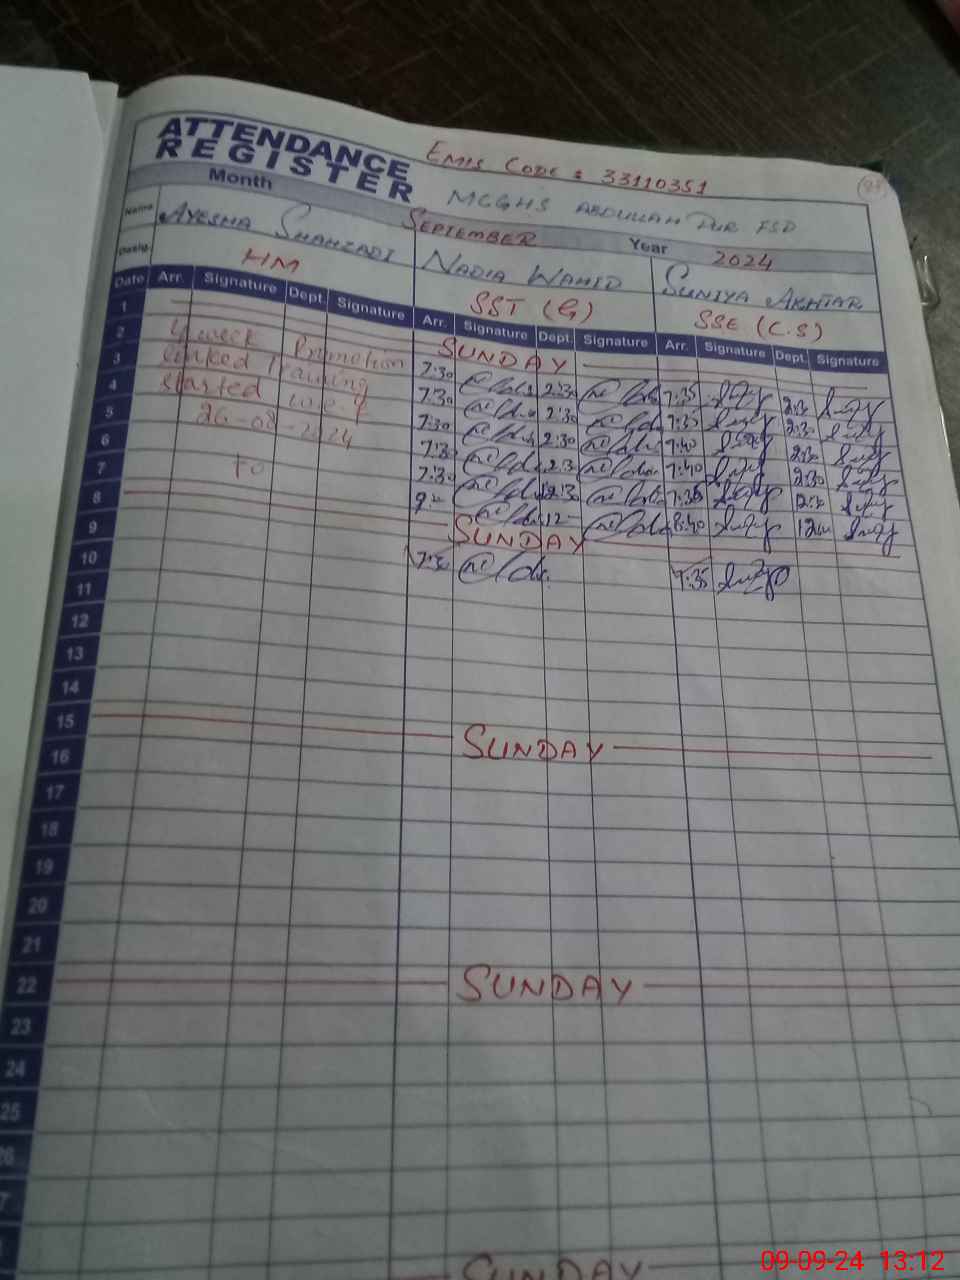 ATTENDANCE
REGISTER
EMIS CODE : 33110351
MCGHS ABDULLAH PUR FSD
Month SEPTEMBER Year 2024
Name AYESHA SHAHZADI NADIA WAHID SUNIYA AKHTAR
Desig. HM SST (G) SSE (C.S)
Date Arr. Signature Dept. Signature Arr. Signature Dept. Signature Arr. Signature Dept. Signature
1 SUNDAY
2 4 week Promotion 7:30 2:30 7:35 2:30
3 linked Training 7:30 2:30 7:35 2:30
4 started w.e.f 7:30 2:30 7:40 2:30
5 26-08-2024 7:30 2:30 7:40 2:30
6 7:30 12:30 7:35 12:30
7 to 12 8:40 12
8 SUNDAY
9 7:30 7:35
10
11
12
13
14
15 SUNDAY
16
17
18
19
20
21
22 SUNDAY
23
24
25
SUNDAY
09-09-24 13:12